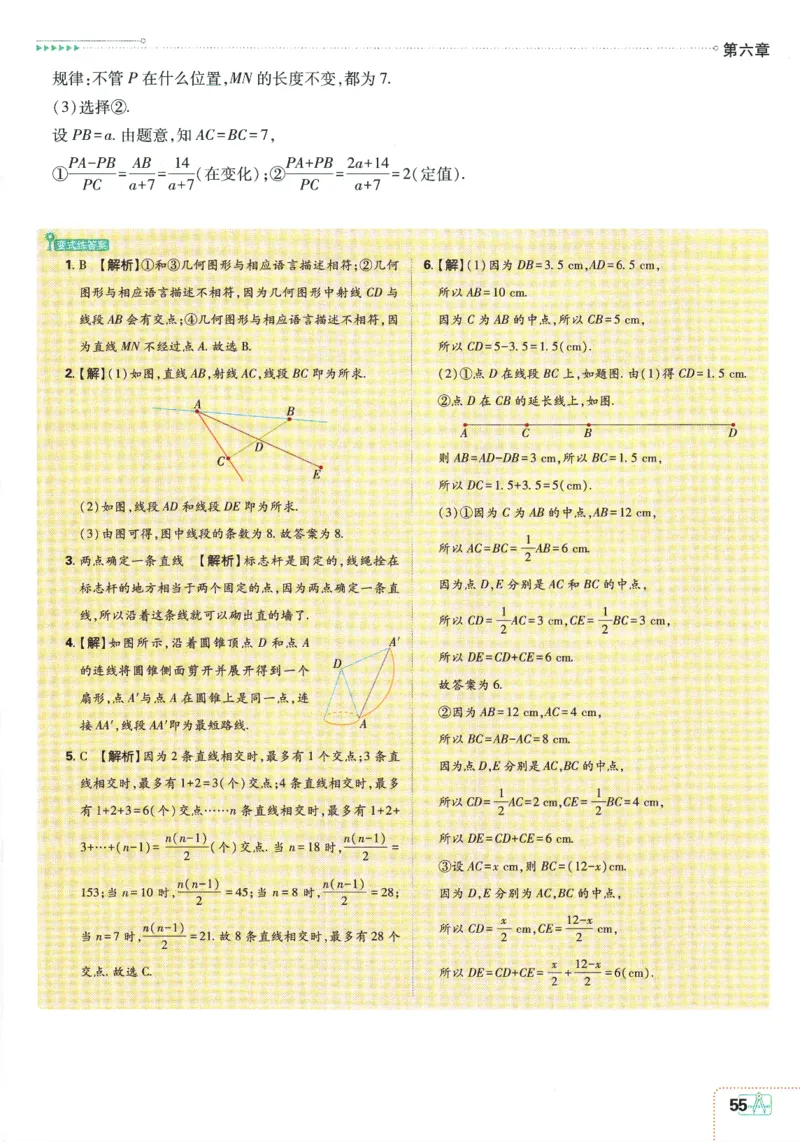 第六章
规律:不管 P 在什么位置,MN 的长度不变,都为 7.
(3)选择②.
设 PB=a. 由题意,知 AC=BC=7,
①(PA-PB)/PC=AB/(a+7)=14/(a+7)(在变化);②(PA+PB)/PC=(2a+14)/(a+7)=2(定值).
变式练答案
1. B 【解析】①和③几何图形与相应语言描述相符;②几何
图形与相应语言描述不相符,因为几何图形中射线 CD 与
线段 AB 会有交点;④几何图形与相应语言描述不相符,因
为直线 MN 不经过点 A. 故选 B.
2.【解】(1)如图,直线 AB,射线 AC,线段 BC 即为所求.
A
B
D
C
E
(2)如图,线段 AD 和线段 DE 即为所求.
(3)由图可得,图中线段的条数为 8. 故答案为 8.
3. 两点确定一条直线 【解析】标志杆是固定的,线绳拴在
标志杆的地方相当于两个固定的点,因为两点确定一条直
线,所以沿着这条线就可以砌出直的墙了.
4.【解】如图所示,沿着圆锥顶点 D 和点 A
的连线将圆锥侧面剪开并展开得到一个
扇形,点 A′与点 A 在圆锥上是同一点,连
接 AA′,线段 AA′即为最短路线.
A′
D
A
5. C 【解析】因为 2 条直线相交时,最多有 1 个交点;3 条直
线相交时,最多有 1+2=3(个)交点;4 条直线相交时,最多
有 1+2+3=6(个)交点……n 条直线相交时,最多有 1+2+
3+…+(n-1)=n(n-1)/2(个)交点. 当 n=18 时,n(n-1)/2=
153;当 n=10 时,n(n-1)/2=45;当 n=8 时,n(n-1)/2=28;
当 n=7 时,n(n-1)/2=21. 故 8 条直线相交时,最多有 28 个
交点. 故选 C.
6.【解】(1)因为 DB=3. 5 cm,AD=6. 5 cm,
所以 AB=10 cm.
因为 C 为 AB 的中点,所以 CB=5 cm,
所以 CD=5-3. 5=1. 5(cm).
(2)①点 D 在线段 BC 上,如题图. 由(1)得 CD=1. 5 cm.
②点 D 在 CB 的延长线上,如图.
A C B D
则 AB=AD-DB=3 cm,所以 BC=1. 5 cm,
所以 DC=1. 5+3. 5=5(cm).
(3)①因为 C 为 AB 的中点,AB=12 cm,
所以 AC=BC=1/2AB=6 cm.
因为点 D,E 分别是 AC 和 BC 的中点,
所以 CD=1/2AC=3 cm,CE=1/2BC=3 cm,
所以 DE=CD+CE=6 cm.
故答案为 6.
②因为 AB=12 cm,AC=4 cm,
所以 BC=AB-AC=8 cm.
因为点 D,E 分别是 AC,BC 的中点,
所以 CD=1/2AC=2 cm,CE=1/2BC=4 cm,
所以 DE=CD+CE=6 cm.
③设 AC=x cm,则 BC=(12-x)cm.
因为 D,E 分别为 AC,BC 的中点,
所以 CD=x/2 cm,CE=(12-x)/2 cm,
所以 DE=CD+CE=x/2+(12-x)/2=6(cm).
55